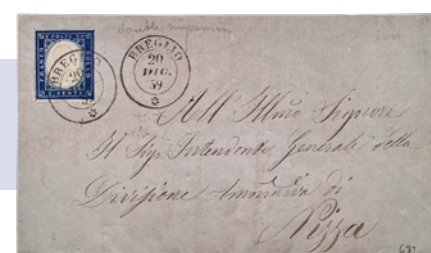 double
BREGLIO
20
DIC.
59
BREGLIO
20
59
All' Illmo Signore
Il Sig. Intendente Generale della
Divisione Ammniva di
Nizza